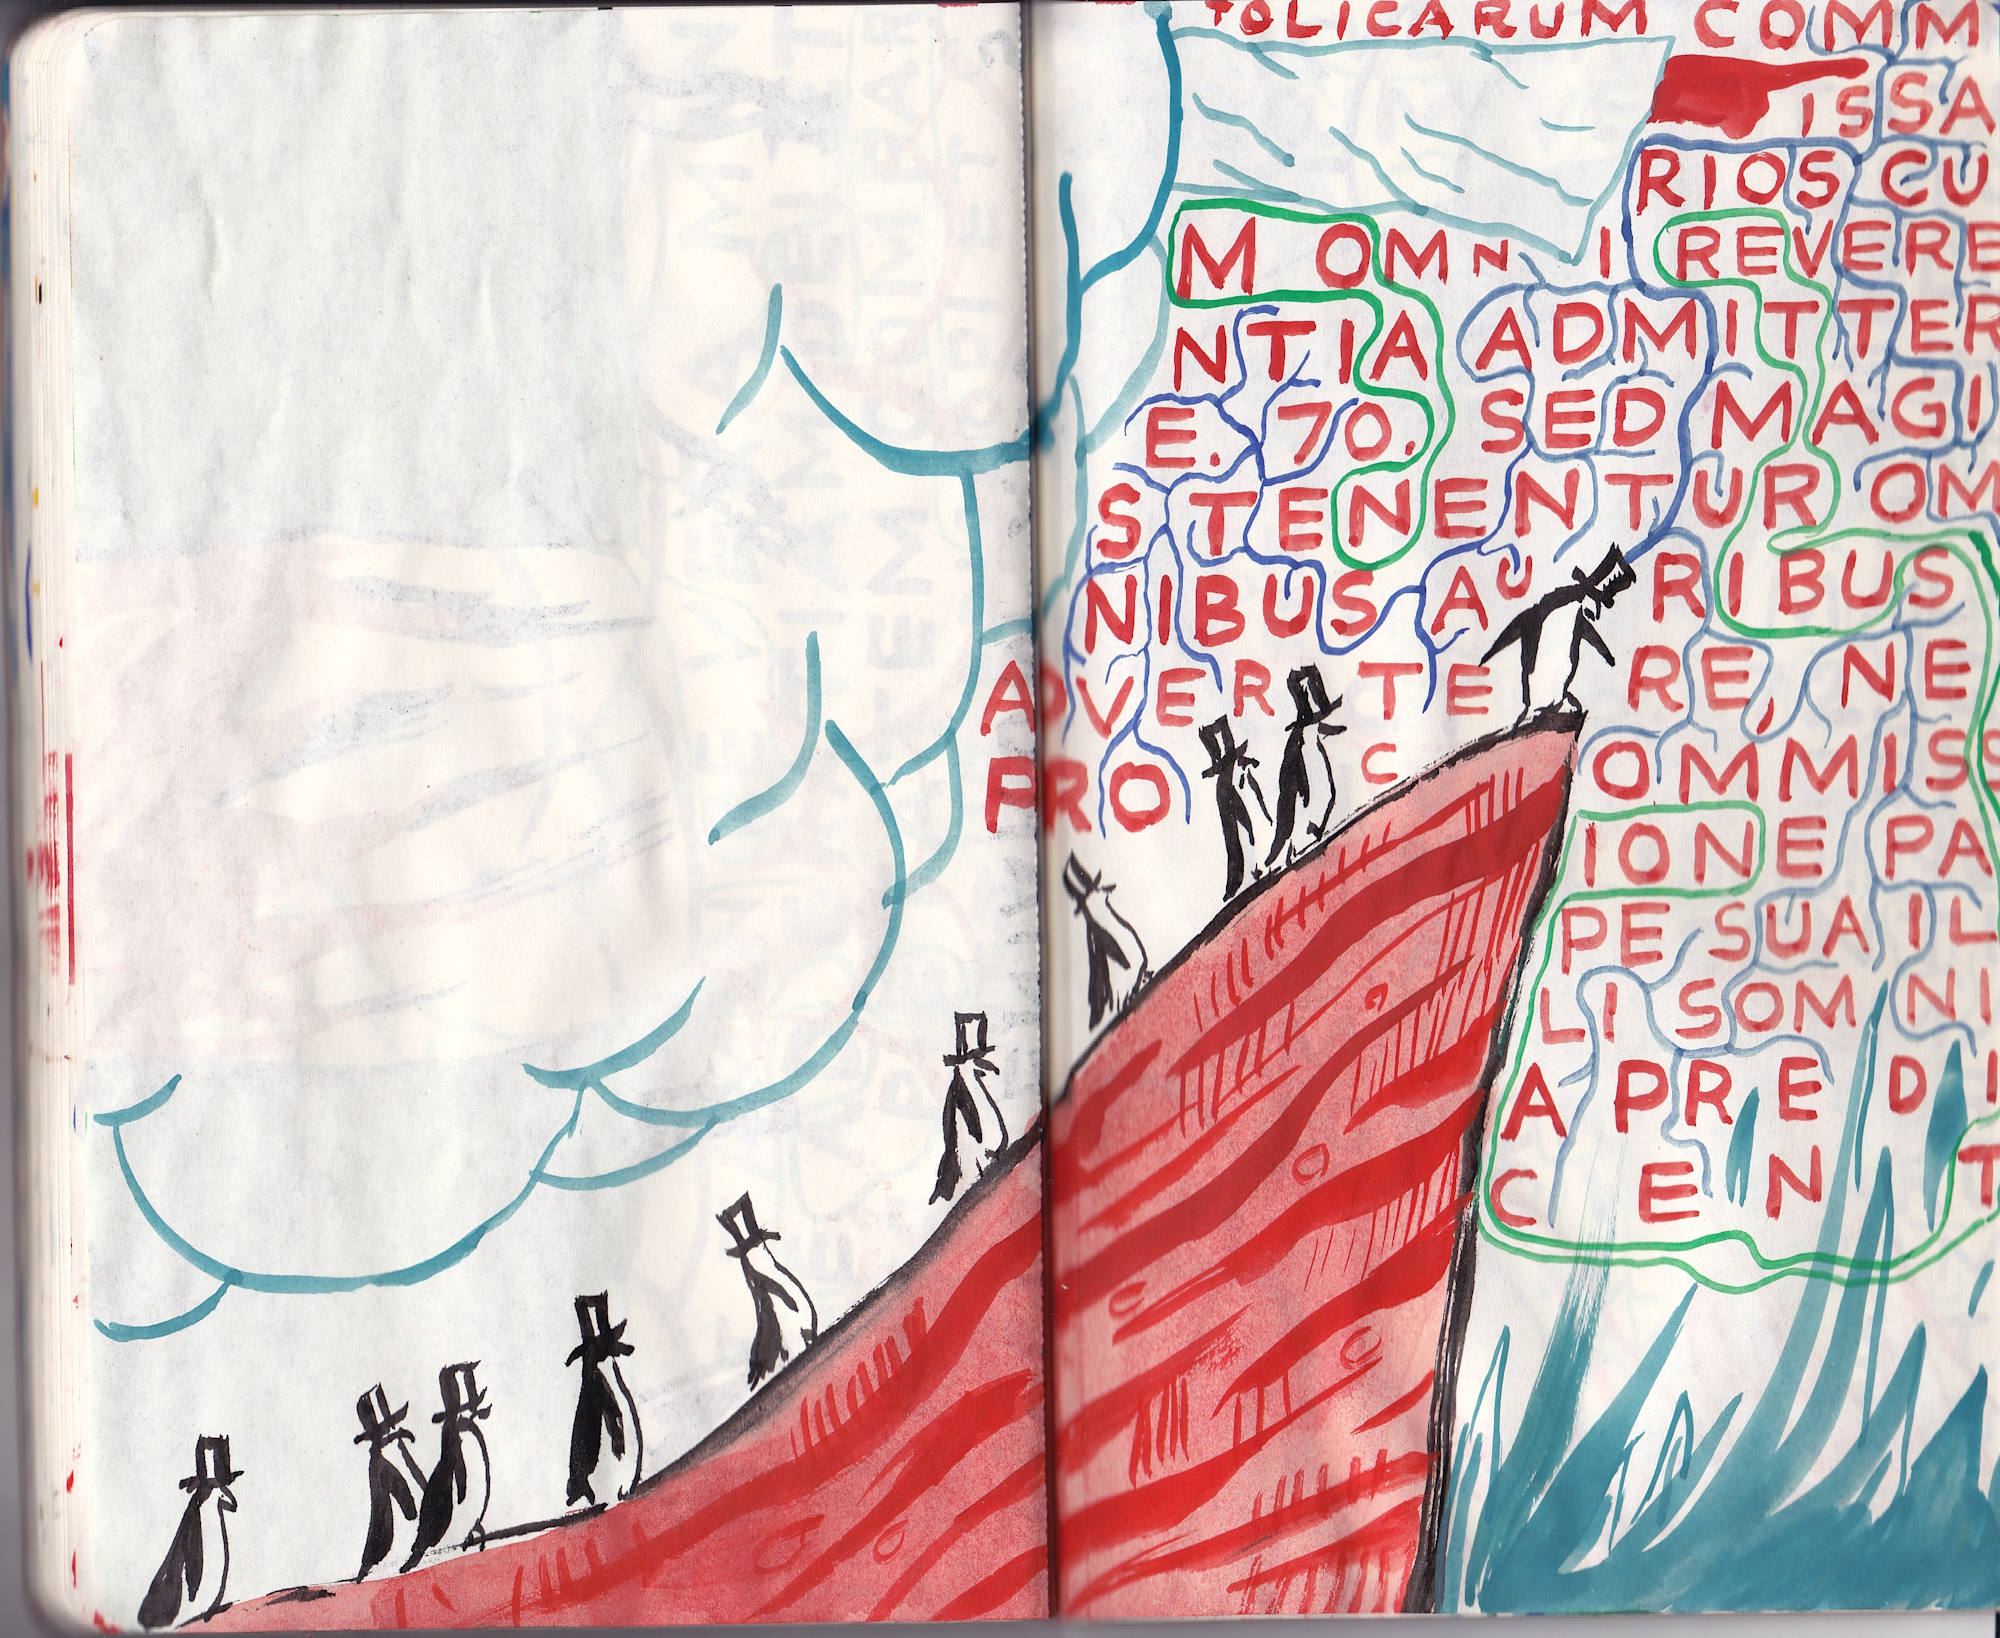 TOLICARUM COMM
ISSA
RIOS CU
M OMNI REVERE
NTIA ADMITTER
E. 70. SED MAGI
S TENENTUR OM
NIBUS AURIBUS
ADVERTERE, NE
PRO COMMISS
IONE PA
PE SUA IL
LI SOMNI
A PREDI
CENT